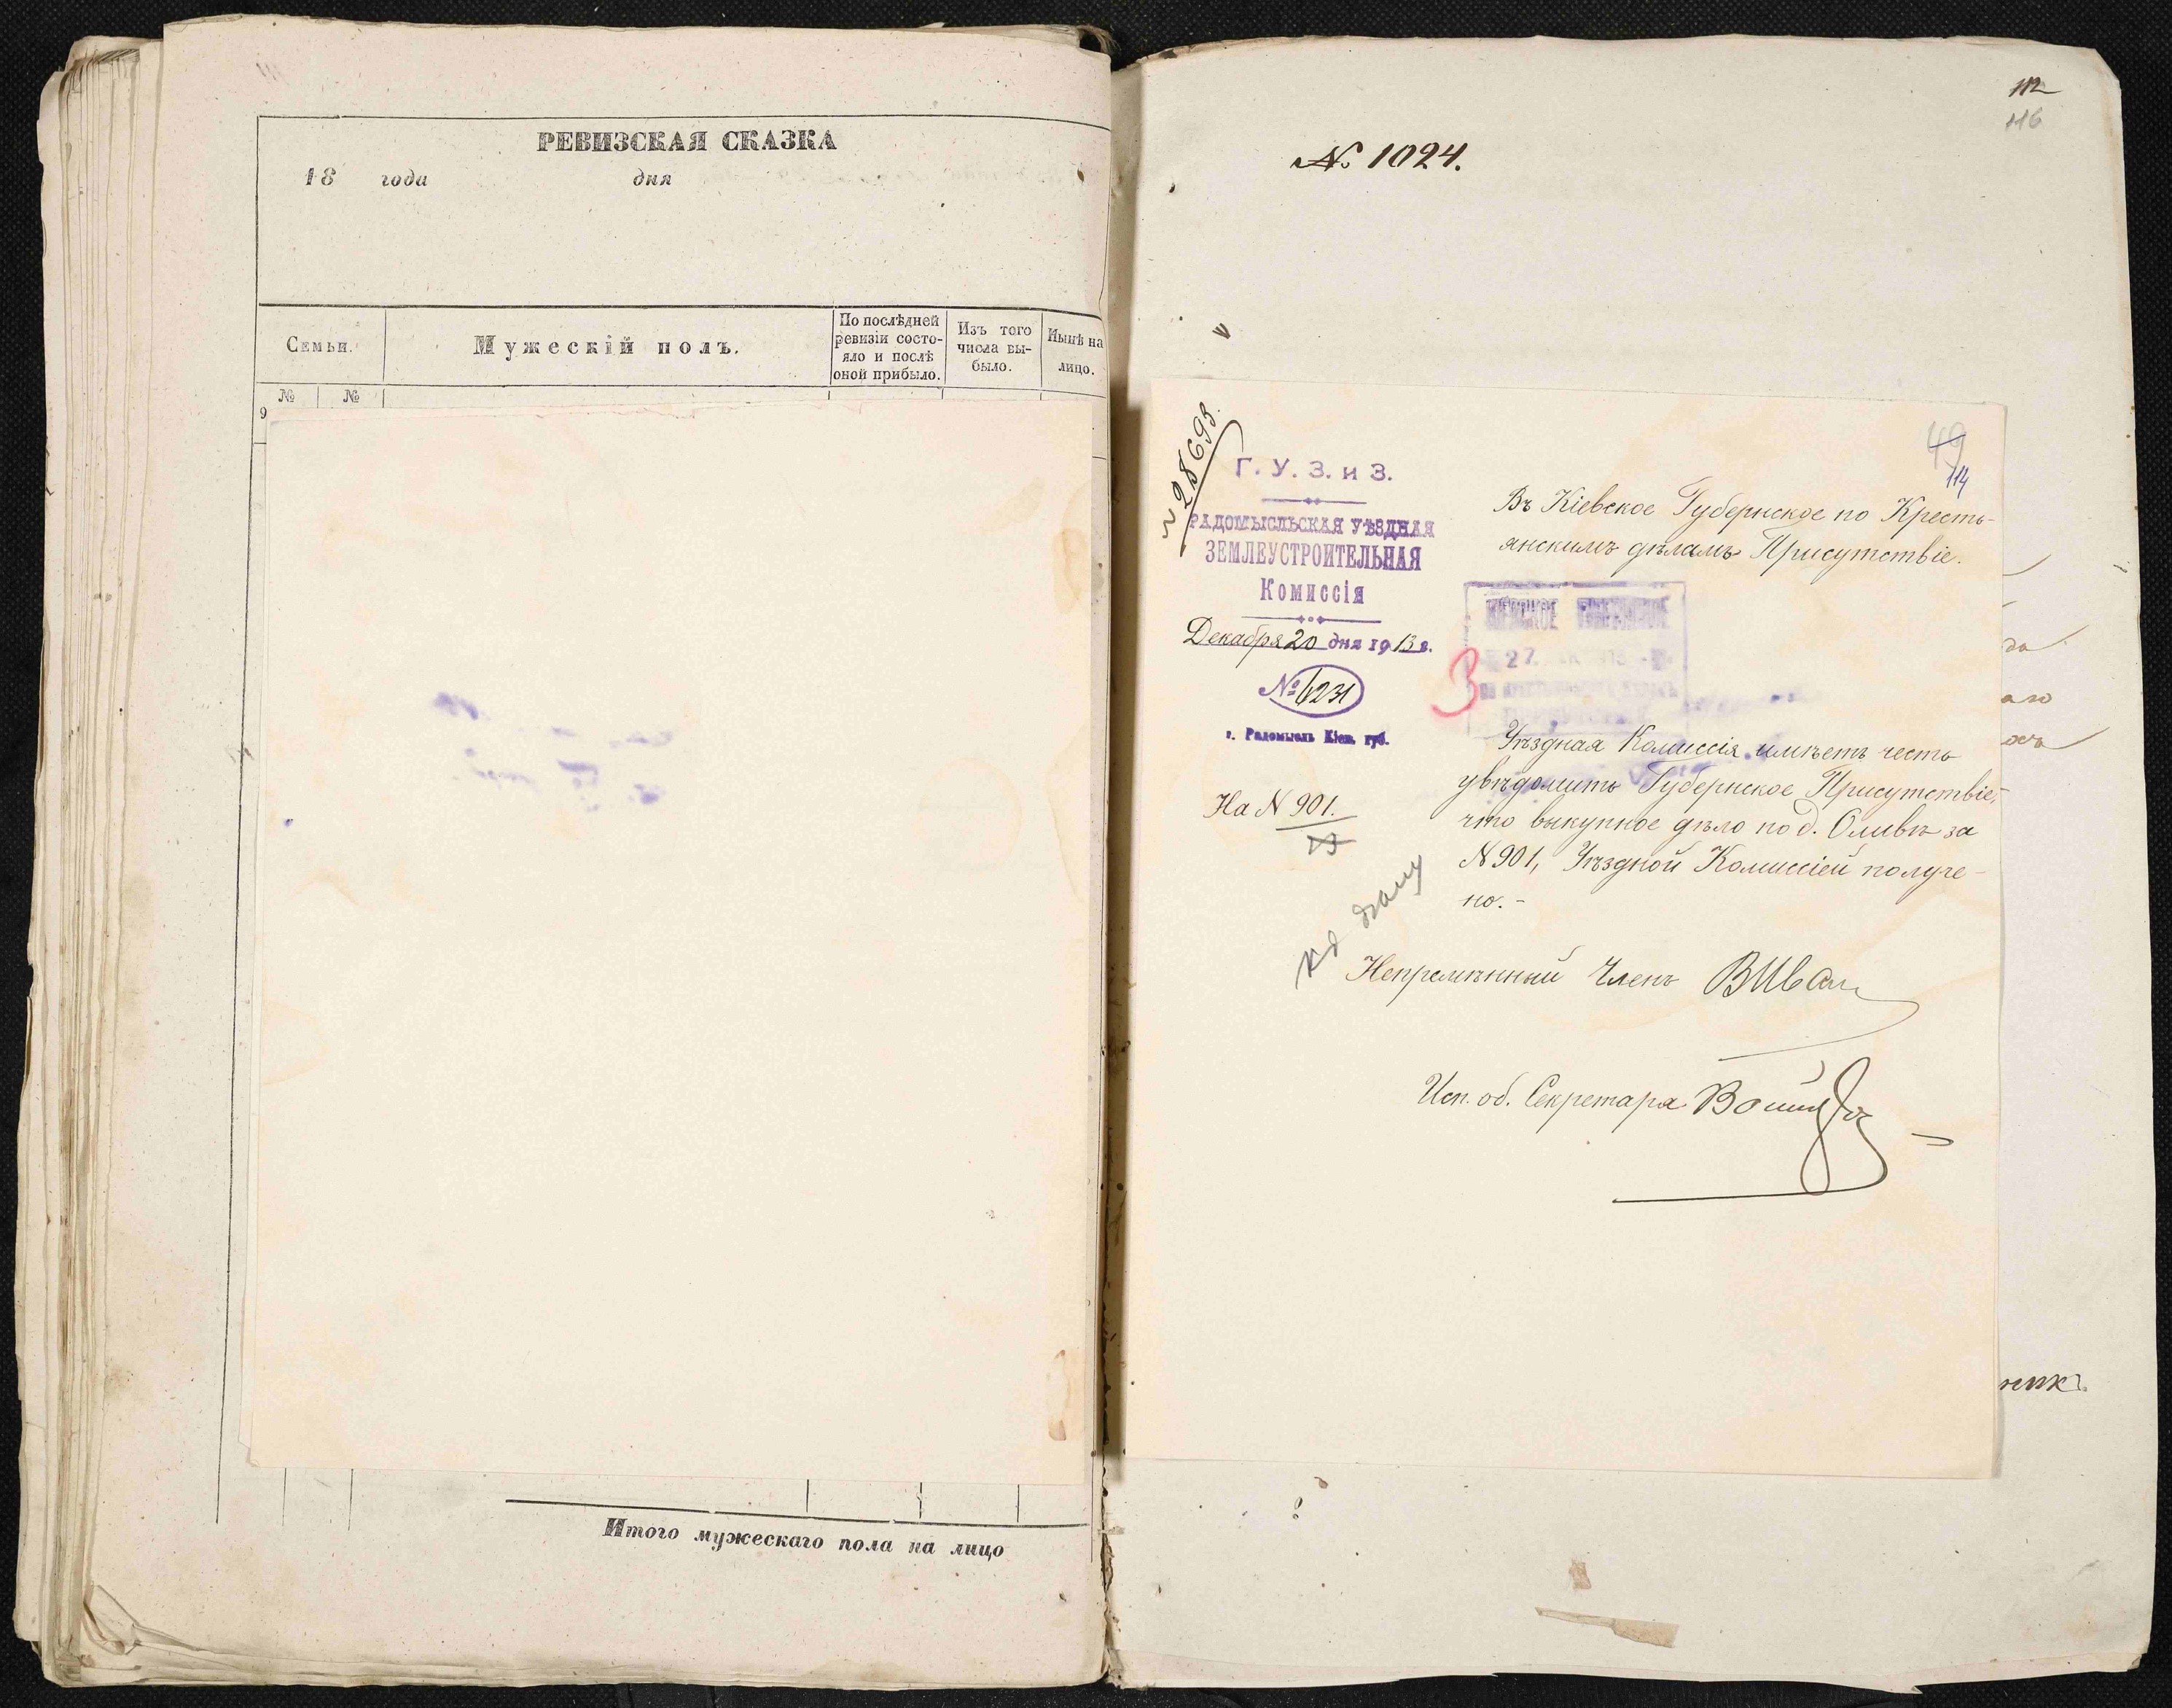 РЕВИЗСКАЯ СКАЗКА
18 года дня
Семьи.
Мужескій полъ.
По послѣдней
ревизіи состо-
яло и послѣ
оной прибыло.
Изъ того
числа вы-
было.
Нынѣ на
лицо.
№ №
9
Итого мужескаго пола на лицо
112
116
№ 1024.
49
114
28693.
Г. У. З. и З.
РАДОМЫСЛЬСКАЯ УѢЗДНАЯ
ЗЕМЛЕУСТРОИТЕЛЬНАЯ
Комиссія
Декабря 20 дня 1913 г.
№ 6231
г. Радомысль Кіев. губ.
На N 901.
Къ дѣлу
Въ Кіевское Губернское по Кресть-
янскимъ дѣламъ Присутствіе.
27
3
Уѣздная Комиссія имѣетъ честь
увѣдомить Губернское Присутствіе,
что выкупное дѣло по д. Оливѣ за
N 901, Уѣздной Комиссіей получе-
но. -
Непремѣнный Членъ
Исп. об. Секретаря